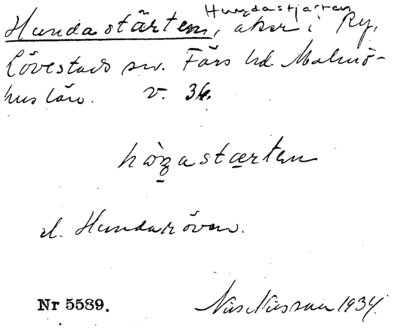 Hundastjärten
Hundastärten, åker i Ry,
Lövestads sn. Färs hd. Malmö-
hus län. v. 34.
håɳastærten
el. Hundaröven.
Nr 5589.
1934.